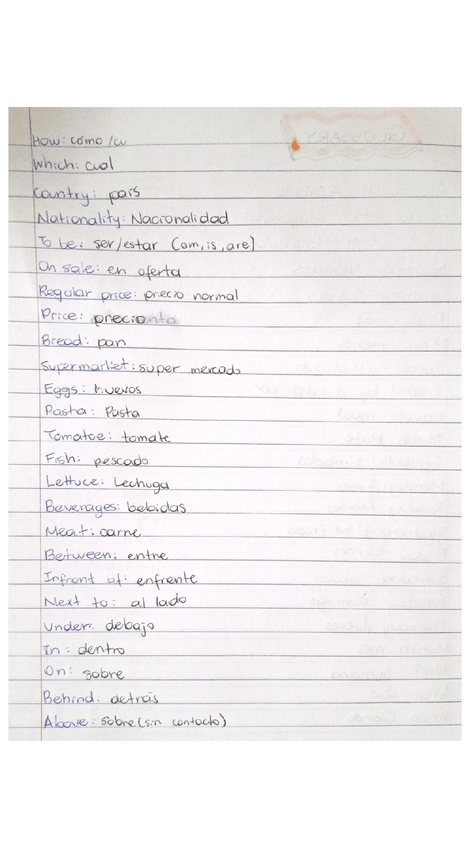 How: cómo /cu
Which: cual
Country: país
Nationality: Nacionalidad
To be: ser/estar (am, is, are)
On sale: en oferta
Regular price: precio normal
Price: precio
Bread: pan
Supermarket: super mercado
Eggs: huevos
Pasta: Pasta
Tomatoe: tomate
Fish: pescado
Lettuce: Lechuga
Beverages: bebidas
Meat: carne
Between: entre
Infront of: enfrente
Next to: al lado
Under: debajo
In: dentro
On: sobre
Behind: detrás
Above: sobre (sin contacto)